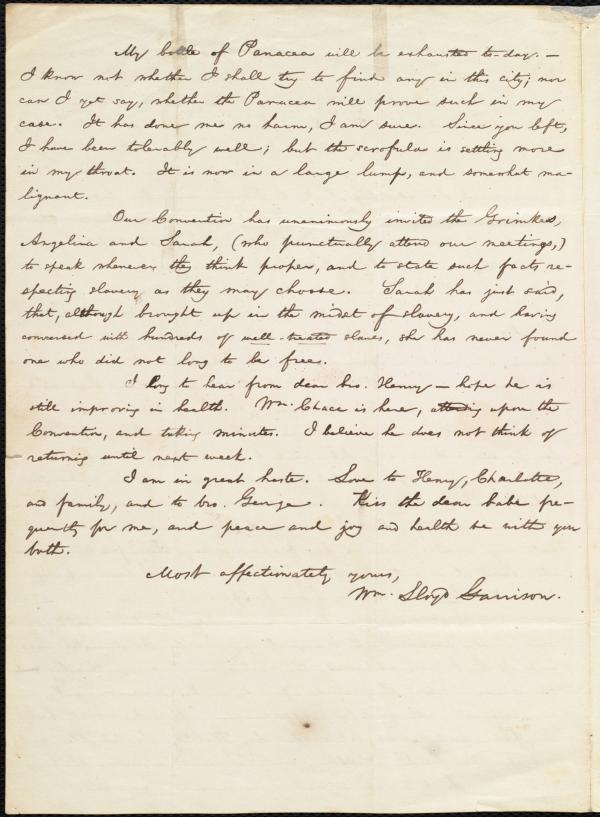 My bottle of Panacea will be exhausted to-day. —
I know not whether I shall try to find any in this city; nor
can I yet say, whether the Panacea will prove such in my
case. It has done me no harm, I am sure. Since you left,
I have been tolerably well; but the scrofula is settling more
in my throat. It is now in a large lump, and somewhat ma-
lignant.
Our Convention has unanimously invited the Grimkes,
Angelina and Sarah, (who punctually attend our meetings,)
to speak whenever they think proper, and to state such facts re-
specting slavery as they may choose. Sarah has just said,
that, although brought up in the midst of slavery, and having
conversed with hundreds of well-treated slaves, she has never found
one who did not long to be free.
I long to hear from dear bro. Henry — hope he is
still improving in health. Wm. Chace is here, attending upon the
Convention, and taking minutes. I believe he does not think of
returning until next week.
I am in great haste. Love to Henry, Charlotte,
and family, and to bro. George. Kiss the dear babe fre-
quently for me, and peace and joy and health be with you
both.
Most affectionately yours,
Wm. Lloyd Garrison.